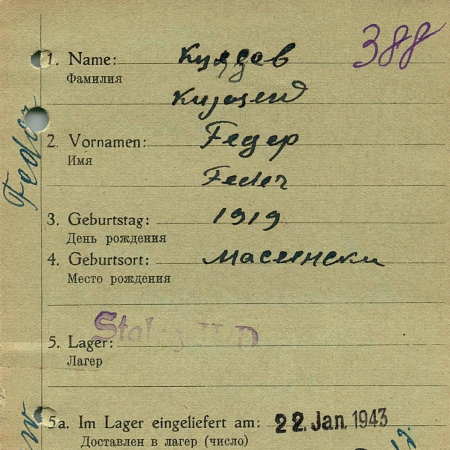 388
1. Name:
Фамилия
2. Vornamen: Федер
Имя
Feder
3. Geburtstag: 1919
День рождения
4. Geburtsort:
Место рождения
5. Lager: Stalag II D
Лагер
5a. Im Lager eingeliefert am: 22. Jan. 1943
Доставлен в лагер (число)